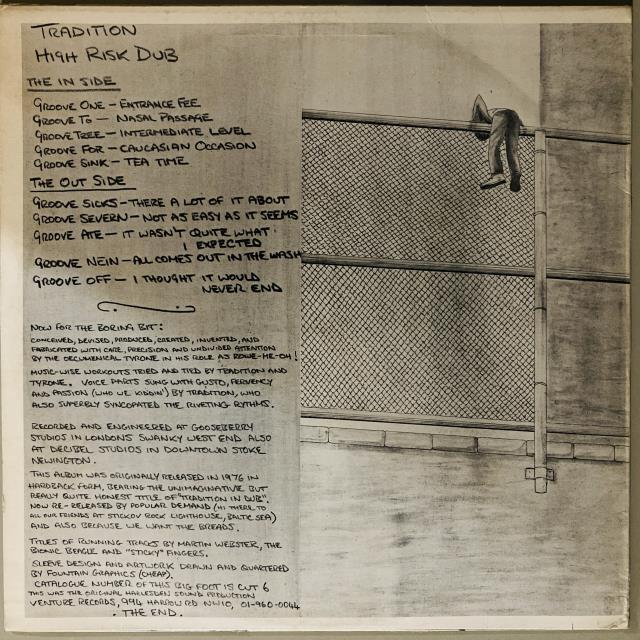 TRADITION
HIGH RISK DUB
THE IN SIDE
GROOVE ONE – ENTRANCE FEE
GROOVE TO – NASAL PASSAGE
GROOVE TREE – INTERMEDIATE LEVEL
GROOVE FOR – CAUCASIAN OCCASION
GROOVE SINK – TEA TIME
THE OUT SIDE
GROOVE SICKS – THERE A LOT OF IT ABOUT
GROOVE SEVERN – NOT AS EASY AS IT SEEMS
GROOVE ATE – IT WASN'T QUITE WHAT
I EXPECTED
GROOVE NEIN – ALL COMES OUT IN THE WASH
GROOVE OFF – I THOUGHT IT WOULD
NEVER END
NOW FOR THE BORING BIT:
CONCEIVED, DEVISED, PRODUCED, CREATED, INVENTED, AND
FABRICATED WITH CARE, PRECISION AND UNDIVIDED ATTENTION
BY THE OECUMENICAL TYRONE IN HIS ROLE AS ROWE-ME-OH!
MUSIC-WISE WORKOUTS TRIED AND TIED BY TRADITION AND
TYRONE. VOICE PARTS SUNG WITH GUSTO, FERVENCY
AND PASSION (WHO WE KIDDIN') BY TRADITION, WHO
ALSO SUPERBLY SYNCOPATED THE RIVETING RYTHMS.
RECORDED AND ENGINEERED AT GOOSEBERRY
STUDIOS IN LONDONS SWANKY WEST END ALSO
AT DECIBEL STUDIOS IN DOWNTOWN STOKE
NEWINGTON.
THIS ALBUM WAS ORIGINALLY RELEASED IN 1976 IN
HARDBACK FORM, BEARING THE UNIMAGINATIVE BUT
REALLY QUITE HONEST TITLE OF "TRADITION IN DUB".
NOW RE-RELEASED BY POPULAR DEMAND (HI THERE TO
ALL OUR FRIENDS AT STICKOV ROCK LIGHTHOUSE, BALTIC SEA)
AND ALSO BECAUSE WE WANT THE BREADS.
TITLES OF RUNNING TRACKS BY MARTIN WEBSTER, THE
BIONIC BEAGLE AND "STICKY" FINGERS.
SLEEVE DESIGN AND ARTWORK DRAWN AND QUARTERED
BY FOUNTAIN GRAPHICS (CHEAP).
CATALOGUE NUMBER OF THIS BIG FOOT IS CUT 6
THIS WAS THE ORIGINAL HARLESDEN SOUND PRODUCTION
VENTURE RECORDS, 994 HARROW RD NW10, 01-960-0044
. THE END .